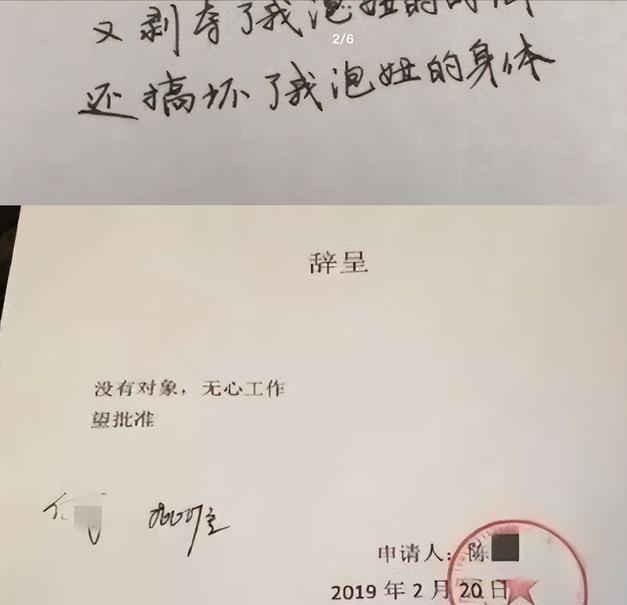 又剥夺了我泡妞的时间
2/6
还搞坏了我泡妞的身体
辞呈
没有对象，无心工作
望批准
申请人：陈
2019年2月20日